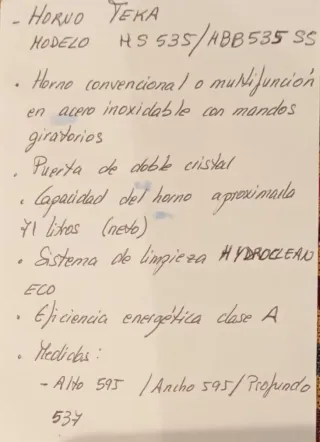 - HORNO TEKA
MODELO HS 535/HBB535 SS
• Horno convencional o multifunción
en acero inoxidable con mandos
giratorios
• Puerta de doble cristal
• Capacidad del horno aproximada
71 litros (neto)
• Sistema de limpieza HYDROCLEAN
ECO
• Eficiencia energética clase A
• Medidas:
- Alto 595 / Ancho 595 / Profundo
537